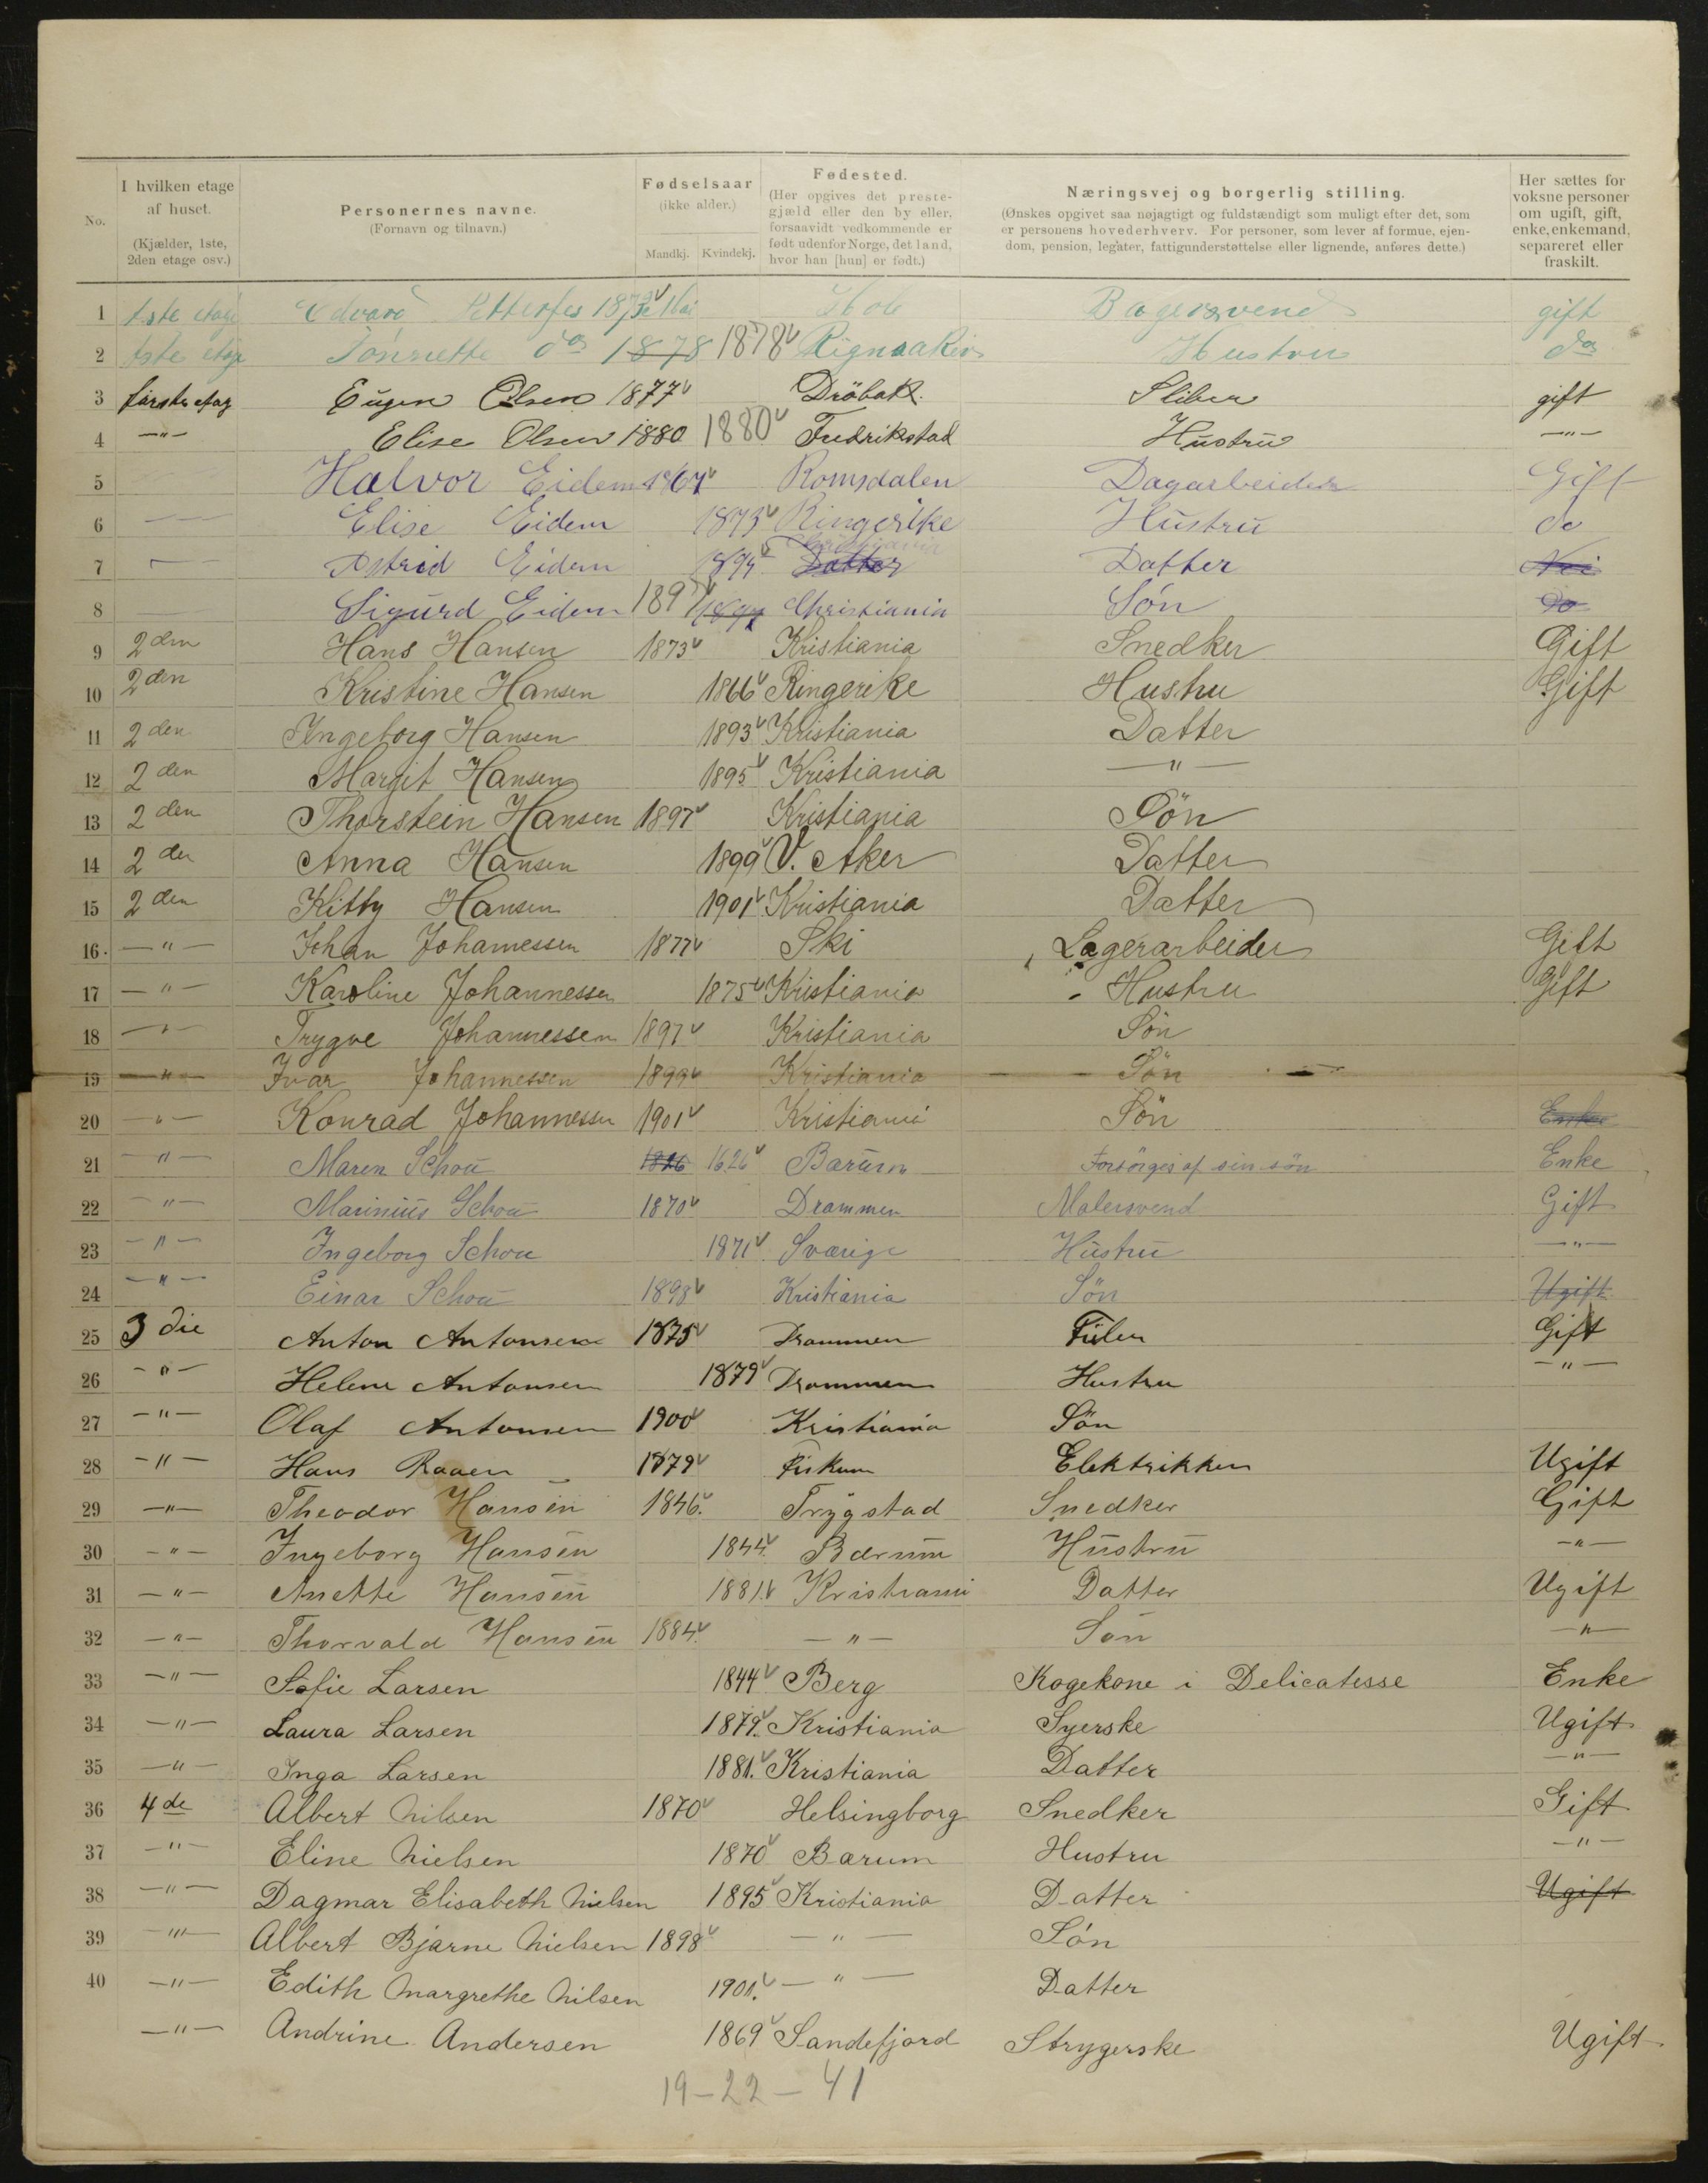 No.
I hvilken etage af huset. (Kjælder, 1ste, 2den etage osv.)
Personernes navne. (Fornavn og tilnavn.)
Fødselsaar (ikke alder.) Mandkj. Kvindekj.
Fødested. (Her opgives det prestegjæld eller den by eller, forsaavidt vedkommende er født udenfor Norge, det land, hvor han [hun] er født.)
Næringsvej og borgerlig stilling. (Ønskes opgivet saa nøjagtigt og fuldstændigt som muligt efter det, som er personens hovederhverv. For personer, som lever af formue, ejendom, pension, legater, fattigunderstøttelse eller lignende, anføres dette.)
Her sættes for voksne personer om ugift, gift, enke, enkemand, separeret eller fraskilt.
1 1ste etage Edvard Hole Bagersvend gift
2 1ste etage do 1878 1878 Hustru do
3 første etag Eugen Olsen 1877 Dröbak Sliber gift
4 —"— Elise Olsen 1880 1880 Fredrikstad Hustru —"—
5 — Halvor Eidem Romsdalen Dagarbeider Gift
6 — Elise Eidem 1873 Ringerike Hustru do
7 — Astrid Eidem Christiania Datter Datter Nei
8 — Sigurd Eidem Christiania Són do
9 2den Hans Hansen 1873 Kristiania Snedker Gift
10 2den Kristine Hansen 1866 Ringerike Hustru Gift
11 2den Ingeborg Hansen 1893 Kristiania Datter
12 2den Margit Hansen 1895 Kristiania —"—
13 2den Thorstein Hansen 1897 Kristiania Sön
14 2den Anna Hansen 1899 V. Aker Datter
15 2den Kitty Hansen 1901 Kristiania Datter
16 —"— Johan Johannessen 1877 Ski Lagerarbeider Gift
17 —"— Karoline Johannessen 1875 Kristiania Hustru Gift
18 —"— Trygve Johannessen 1897 Kristiania Sön
19 —"— Ivar Johannessen 1899 Kristiania Sön
20 —"— Konrad Johannessen 1901 Kristiania Sön Enke
21 —"— Maren Schou 1826 1626 Barum Forsörges af sin sön Enke
22 —"— Marinius Schou 1870 Drammen Malersvend Gift
23 —"— Ingeborg Schou 1871 Sværige Hustru —"—
24 —"— Einar Schou 1898 Kristiania Sön Ugift
25 3die Anton Antonsen 1875 Drammen Filer Gift
26 —"— Helene Antonsen 1879 Drammen Hustru —"—
27 —"— Olaf Antonsen 1900 Kristiania Sön
28 —"— Hans Raaen 1879 Fiskum Elektrikker Ugift
29 —"— Theodor Hansen 1846. Trygstad Snedker Gift
30 —"— Ingeborg Hansen 1844. Bærum Hustru —"—
31 —"— Anette Hansen 1881. Kristiani Datter Ugift
32 —"— Thorvald Hansen 1884. —"— Son —"—
33 —"— Sofie Larsen 1844 Berg Kogekone i Delicatesse Enke
34 —"— Laura Larsen 1879. Kristiania Syerske Ugift
35 —"— Inga Larsen 1881. Kristiania Datter —"—
36 4de Albert Nilsen 1870 Helsingborg Snedker Gift
37 —"— Eline Nielsen 1870 Barum Hustru —"—
38 —"— Dagmar Elisabeth Nielsen 1895 Kristiania Datter Ugift
39 —"— Albert Bjarne Nielsen 1898 —"— Són
40 —"— Edith Margrethe Nilsen 1901. —"— Datter
—"— Andrine Andersen 1869 Sandefjord Strygerske Ugift
19-22-41